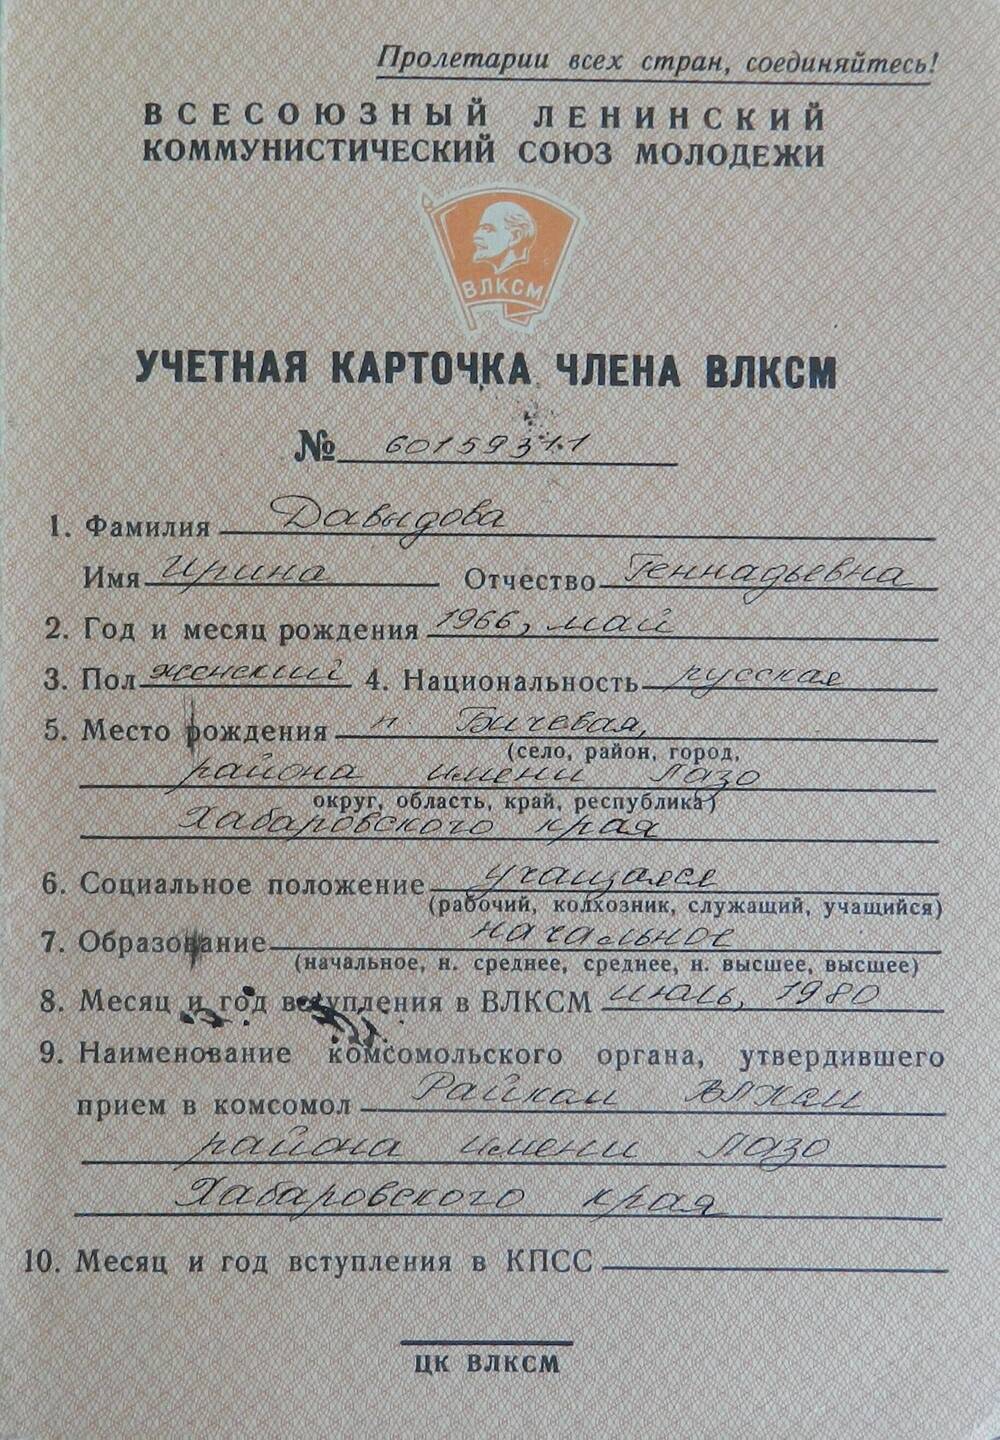 Пролетарии всех стран, соединяйтесь!
ВСЕСОЮЗНЫЙ ЛЕНИНСКИЙ
КОММУНИСТИЧЕСКИЙ СОЮЗ МОЛОДЕЖИ
ВЛКСМ
УЧЕТНАЯ КАРТОЧКА ЧЛЕНА ВЛКСМ
№ 60159311
1. Фамилия Давыдова
Имя Ирина Отчество Геннадьевна
2. Год и месяц рождения 1966, май
3. Пол женский 4. Национальность русская
5. Место рождения п. Бичевая,
(село, район, город,
района имени Лазо
округ, область, край, республика)
Хабаровского края
6. Социальное положение учащаяся
(рабочий, колхозник, служащий, учащийся)
7. Образование начальное
(начальное, н. среднее, среднее, н. высшее, высшее)
8. Месяц и год вступления в ВЛКСМ июль, 1980
9. Наименование комсомольского органа, утвердившего
прием в комсомол Райком ВЛКСМ
района имени Лазо
Хабаровского края
10. Месяц и год вступления в КПСС
ЦК ВЛКСМ